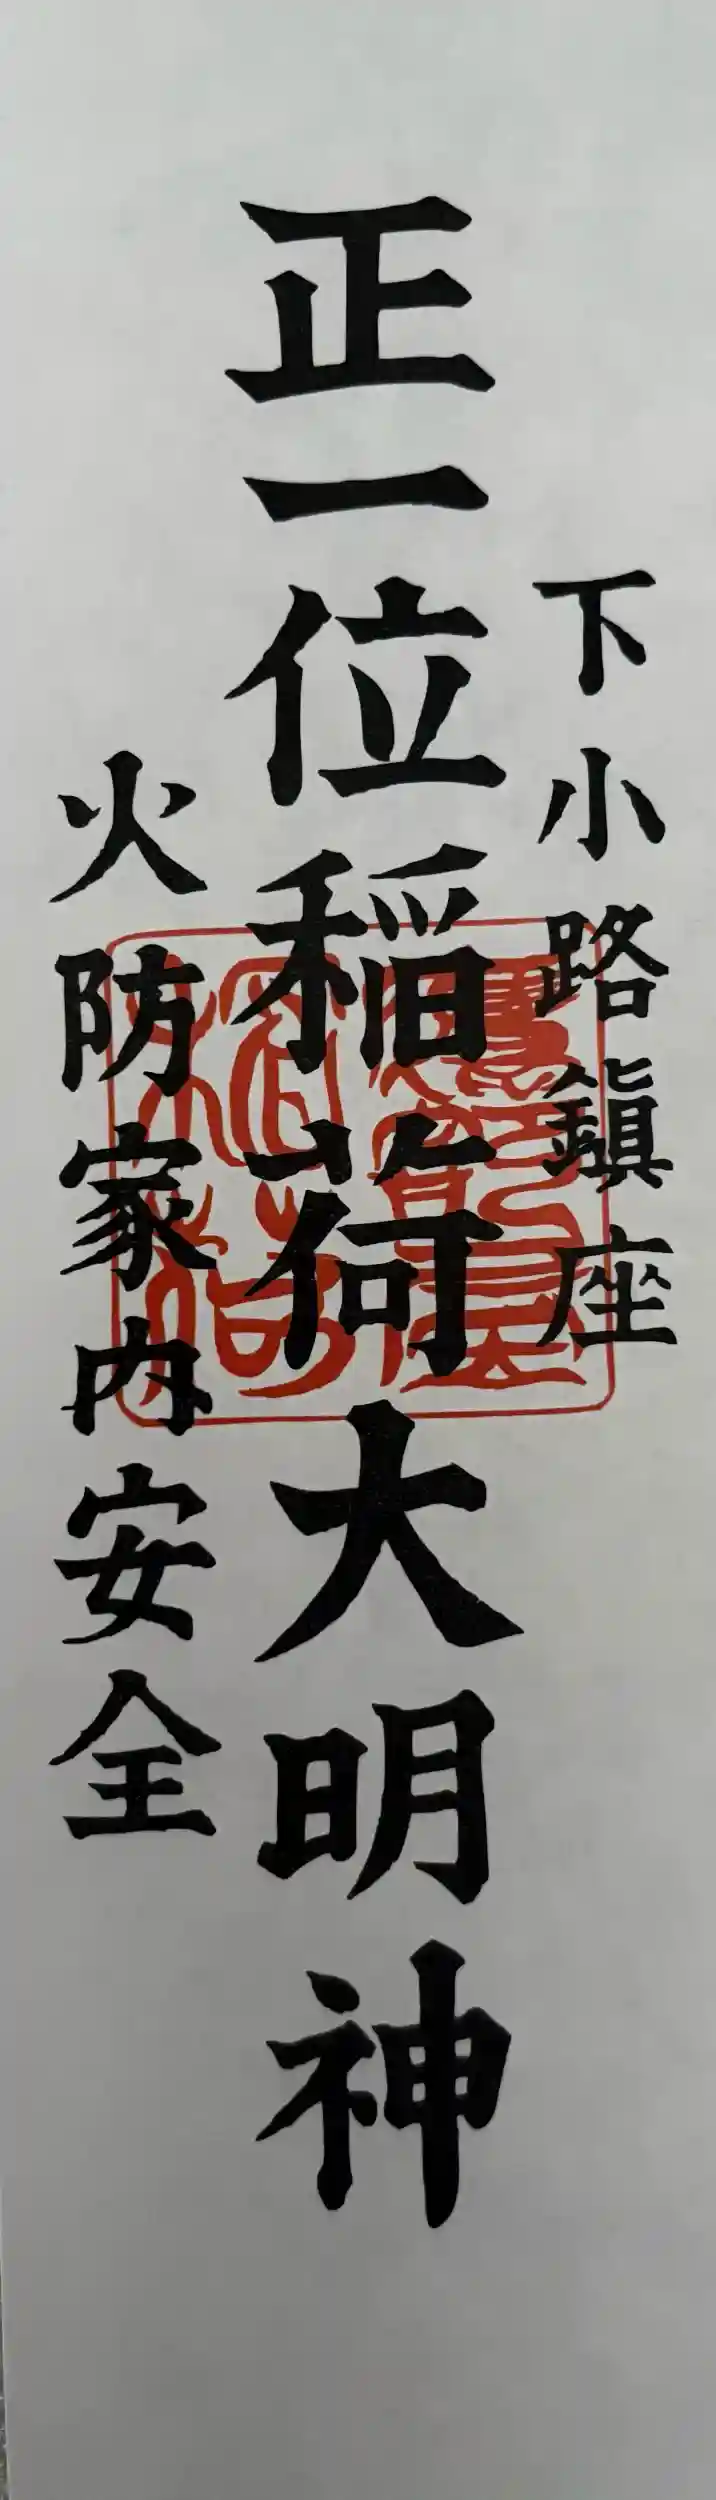 下小路鎮座
正一位稲荷大明神
火防家内安全